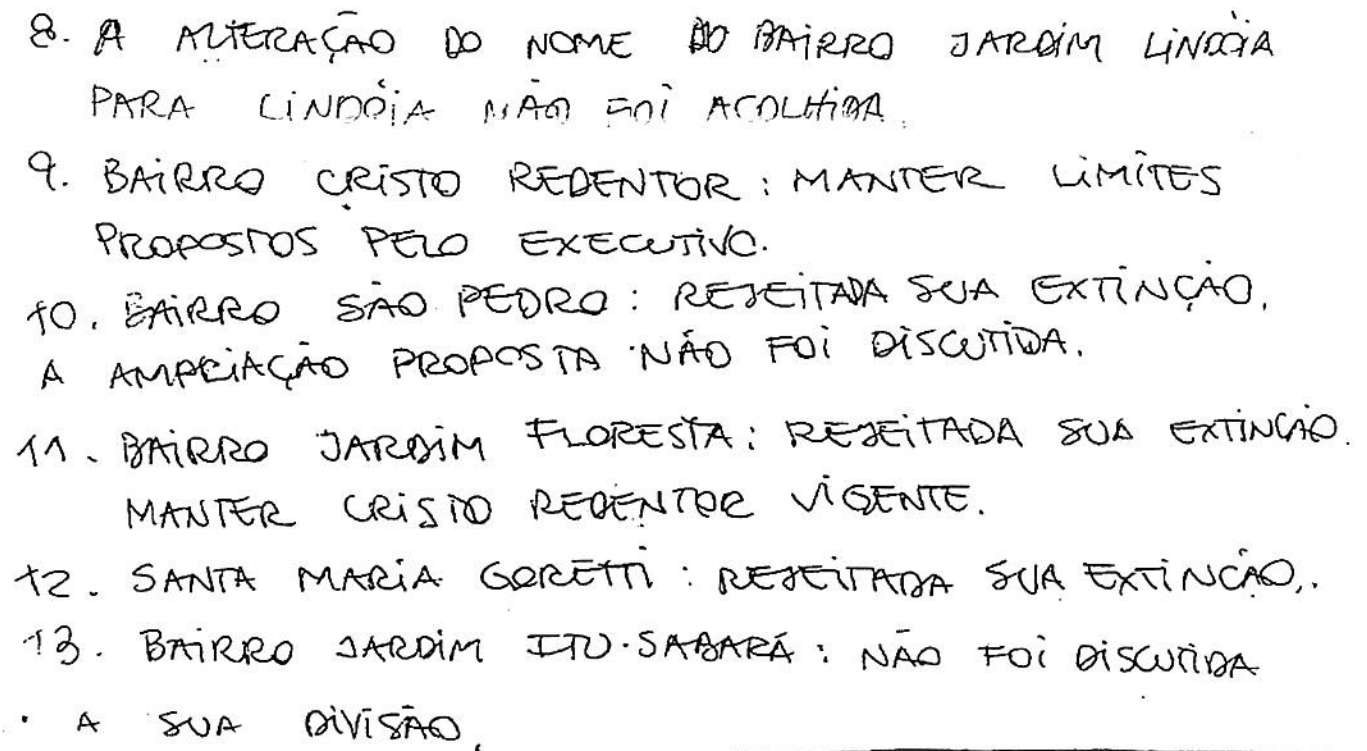 8. A ALTERAÇÃO DO NOME DO BAIRRO JARDIM LINDÓIA
PARA LINDÓIA NÃO FOI ACOLHIDA.
9. BAIRRO CRISTO REDENTOR : MANTER LIMITES
PROPOSTOS PELO EXECUTIVO.
10. BAIRRO SÃO PEDRO : REJEITADA SUA EXTINÇÃO.
A AMPLIAÇÃO PROPOSTA NÃO FOI DISCUTIDA.
11. BAIRRO JARDIM FLORESTA : REJEITADA SUA EXTINÇÃO.
MANTER CRISTO REDENTOR VIGENTE.
12. SANTA MARIA GORETTI : REJEITADA SUA EXTINCÃO.
13. BAIRRO JARDIM ITU-SABARÁ : NÃO FOI DISCUTIDA
A SUA DIVISÃO.